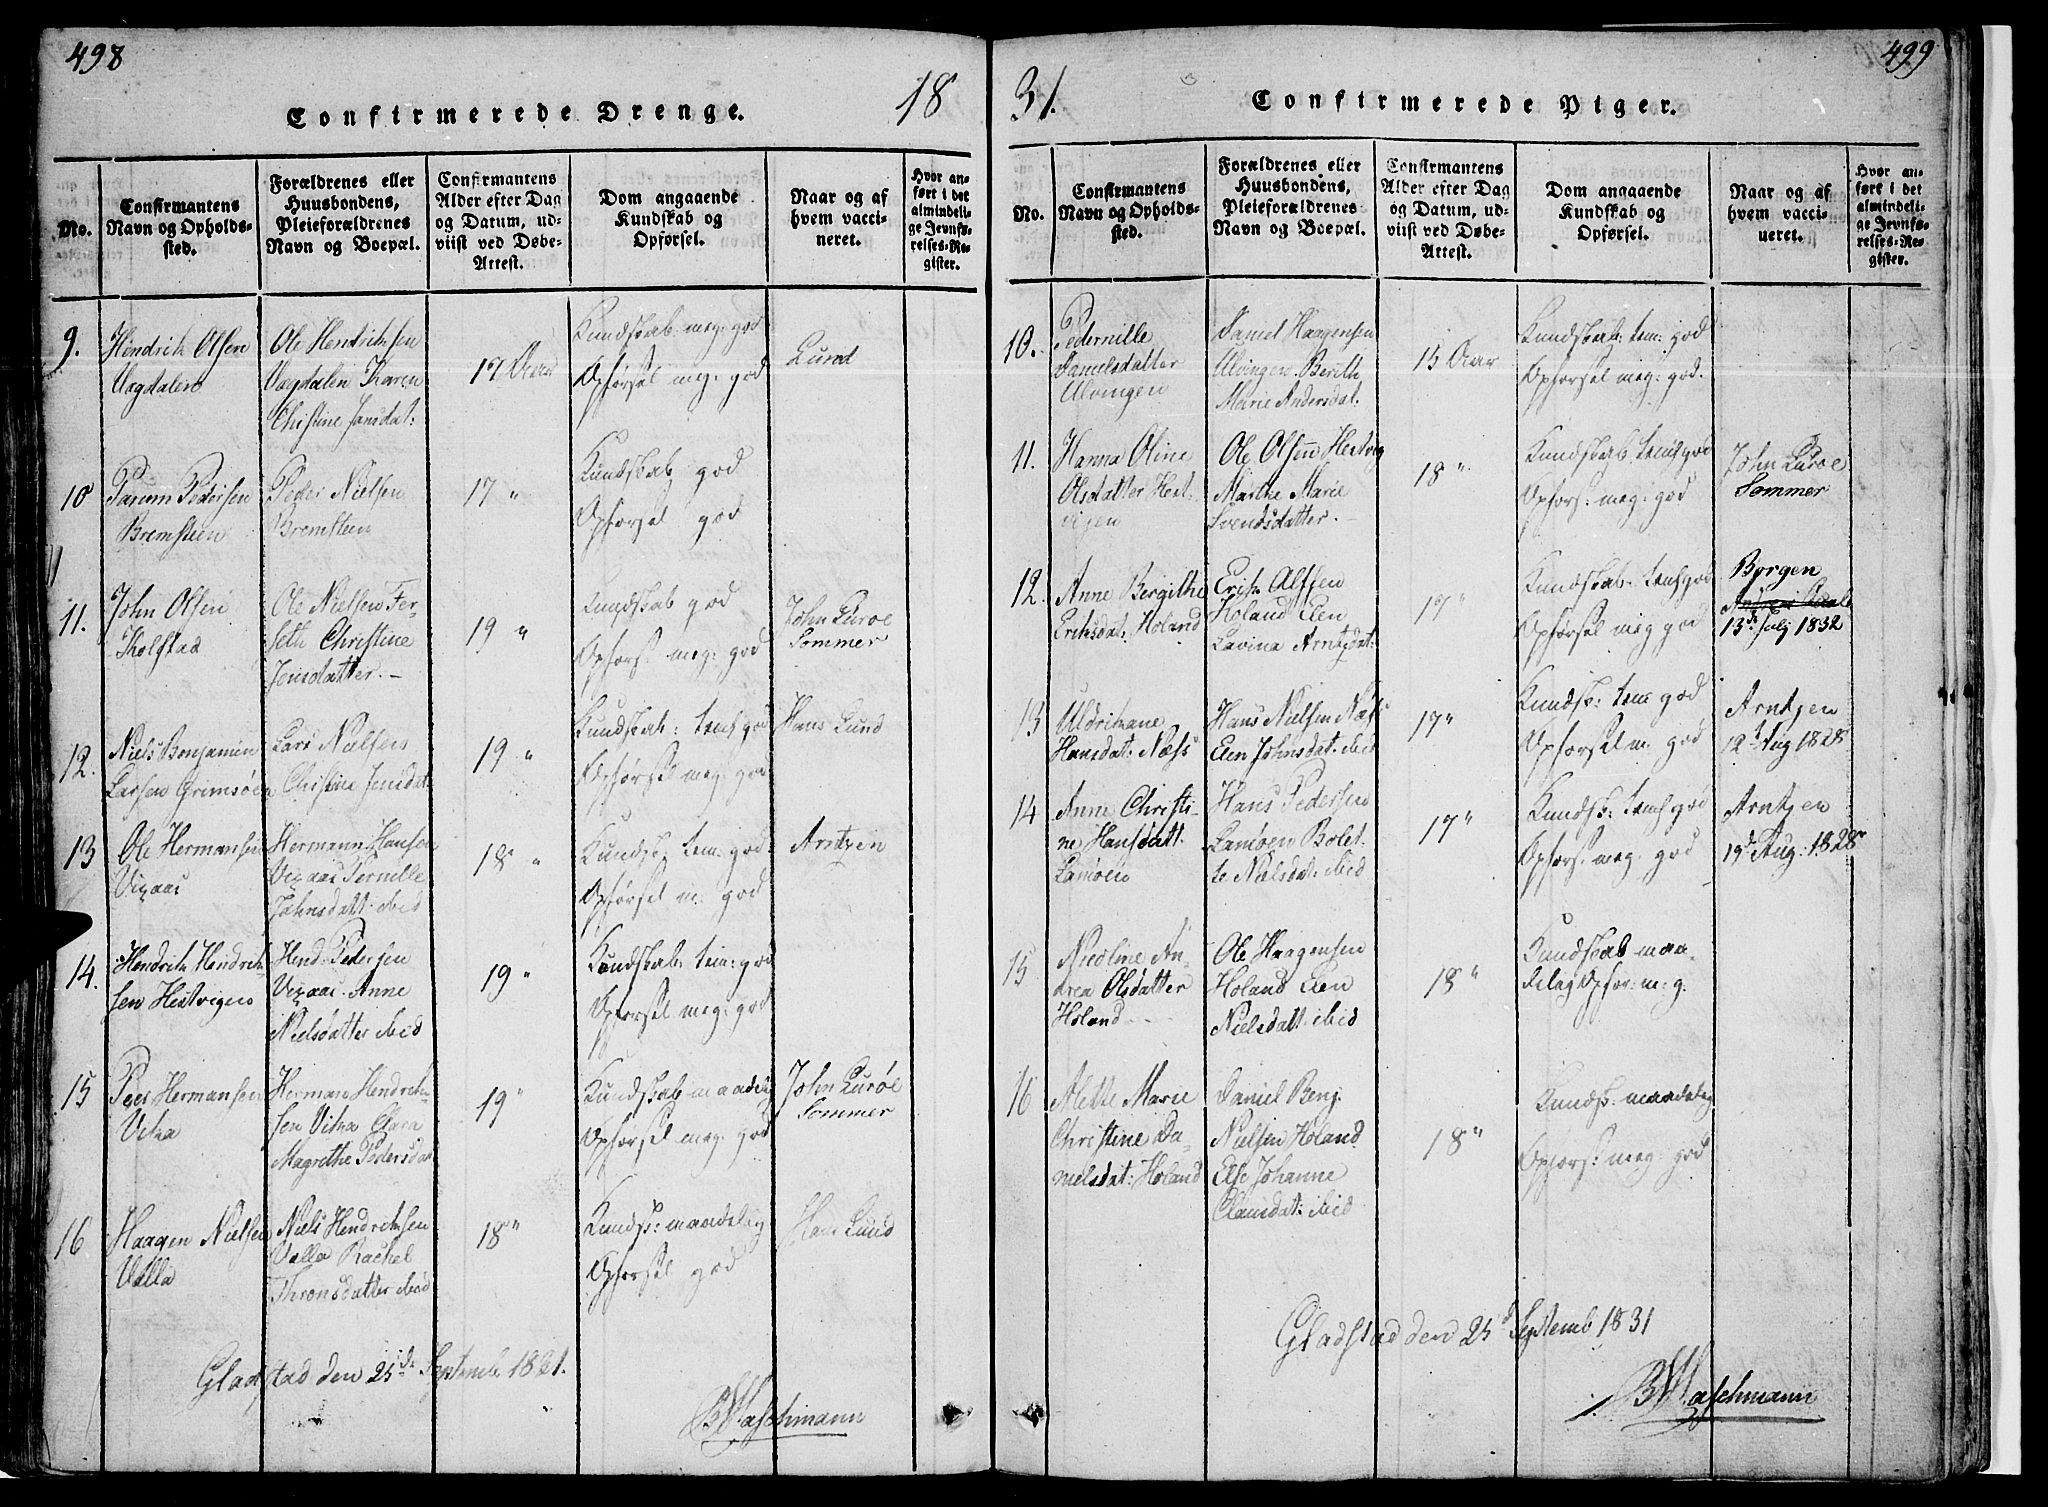 498
18
Confirmerede Drenge.
No.
Confirmantens
Navn og Opholds-
sted.
Forældrenes eller
Huusbondens,
Pleieforældrenes
Navn og Boepæl.
Confirmantens
Alder efter Dag
og Datum, ud-
viist ved Døbe-
Attest.
Dom angaaende
Kundskab og
Opførsel.
Naar og af
hvem vacci-
neret.
Hvor an-
ført i det
almindeli-
ge Jevnfø-
relses-Re-
gister.
9.
Hendrik Olsen
Vagdalen
Ole Hendriksen
Vagdalen Karen
Christine Jansdat:
19 Aar
Kundskab meg: god
Opførsel meg: god
Lund
10
Parum Pedersen
Bremsteen
Peder Nielsen
Bremsteen
17 "
Kundskab god
Opførsel god
11.
John Olsen
Tholstad
Ole Nielsen Fer-
seth Christine
Jensdatter. —
19 "
Kundskab god
Opførs: meg: god
John Lurøe
Sommer
12.
Niels Benjamin
Larsen Grimsøen
Lars Nielsen
Christine Jensdat:
19 "
Kundskab: tem: god
Opførsel meg: god
Hans Lund
13
Ole Hermansen
Vigaas
Hermann Hansen
Vigaas Pernille
Johnsdatt: ibid
18 "
Kundsk: tem: god
Opførsel m: god
Arntzen
14.
Hendrik Hendrik-
sen Hestvigen
Hend: Pedersen
Vigaas Anne
Nielsdatter ibid
19 "
Kundskab: tem: god
Opførsel meg: god
15
Peer Hermansen
Vika
Herman Hendrik-
sen Vika Clara
Magrethe Pedersdat
19 "
Kundskab maadelig
Opførsel meg: god
John Lurøe
Sommer
16
Haagen Nielsen
Valla
Niels Hendriksen
Valla Rachel
Thronsdatter ibid
18 "
Kundsk: maadelig
Opførsel god
Hans Lund
Gladstad den 25de Septemb: 1831.
B Waschmann
499
31.
Confirmerede Piger.
No.
Confirmantens
Navn og Opholds-
sted.
Forældrenes eller
Huusbondens,
Pleieforældrenes
Navn og Boepæl.
Confirmantens
Alder efter Dag
og Datum, ud-
viist ved Døbe-
Attest.
Dom angaaende
Kundskab og
Opførsel.
Naar og af
hvem vacci-
neret.
Hvor an-
ført i det
almindeli-
ge Jevnfø-
relses-Re-
gister.
10.
Pedernille
Danielsdatter
Ulvingen
Daniel Haagensen
Ulvingen Berith
Marie Andersdat:
15 Aar
Kundskab: tem: god
Opførsel meg: god.
11.
Hanna Oline
Olsdatter Hest-
vigen
Ole Olsen Hestvig
Marthe Marie
Svendsdatter. —
18 "
Kundskab: tem: god
Opførs: meg: god
John Lurøe
Sommer
12.
Anne Bergithe
Eriksdat: Holand
Erik Alffen
Holand Elen
Lavina Arntzdat:
17 "
Kundskab: tem: god
Opførsel meg god
Borgen
13de July 1832
13
Uldrikane
Hansdat: Næss
Hans Nielsen Næss
Elen Johnsdat: ibid
17 "
Kundsk: tem god
Opførsel m: god
Arntzen
12t Aug 1828
14
Anne Christi-
ne Hansdatt.
Lamøen
Hans Pedersen
Lamøen Bolet-
te Nielsdat: ibid
17 "
Kundsk: tem: god
Opførs: meg: god
Arntzen
19de Aug: 1828
15
Nicoline An-
drea Olsdatter
Holand
Ole Haagensen
Holand Elen
Nielsdatt: ibid
18 "
Kundskab maa-
delag Opfør: m: g.
16
Alette Marie
Christine Da-
nielsdat: Holand
Daniel Benj.
Nielsen Holand
Else Johanne
Clausdat: ibid
18 "
Kundsk: maadelig
Opførs: meg: god
Gladstad den 25d Septemb 1831
B Waschmann